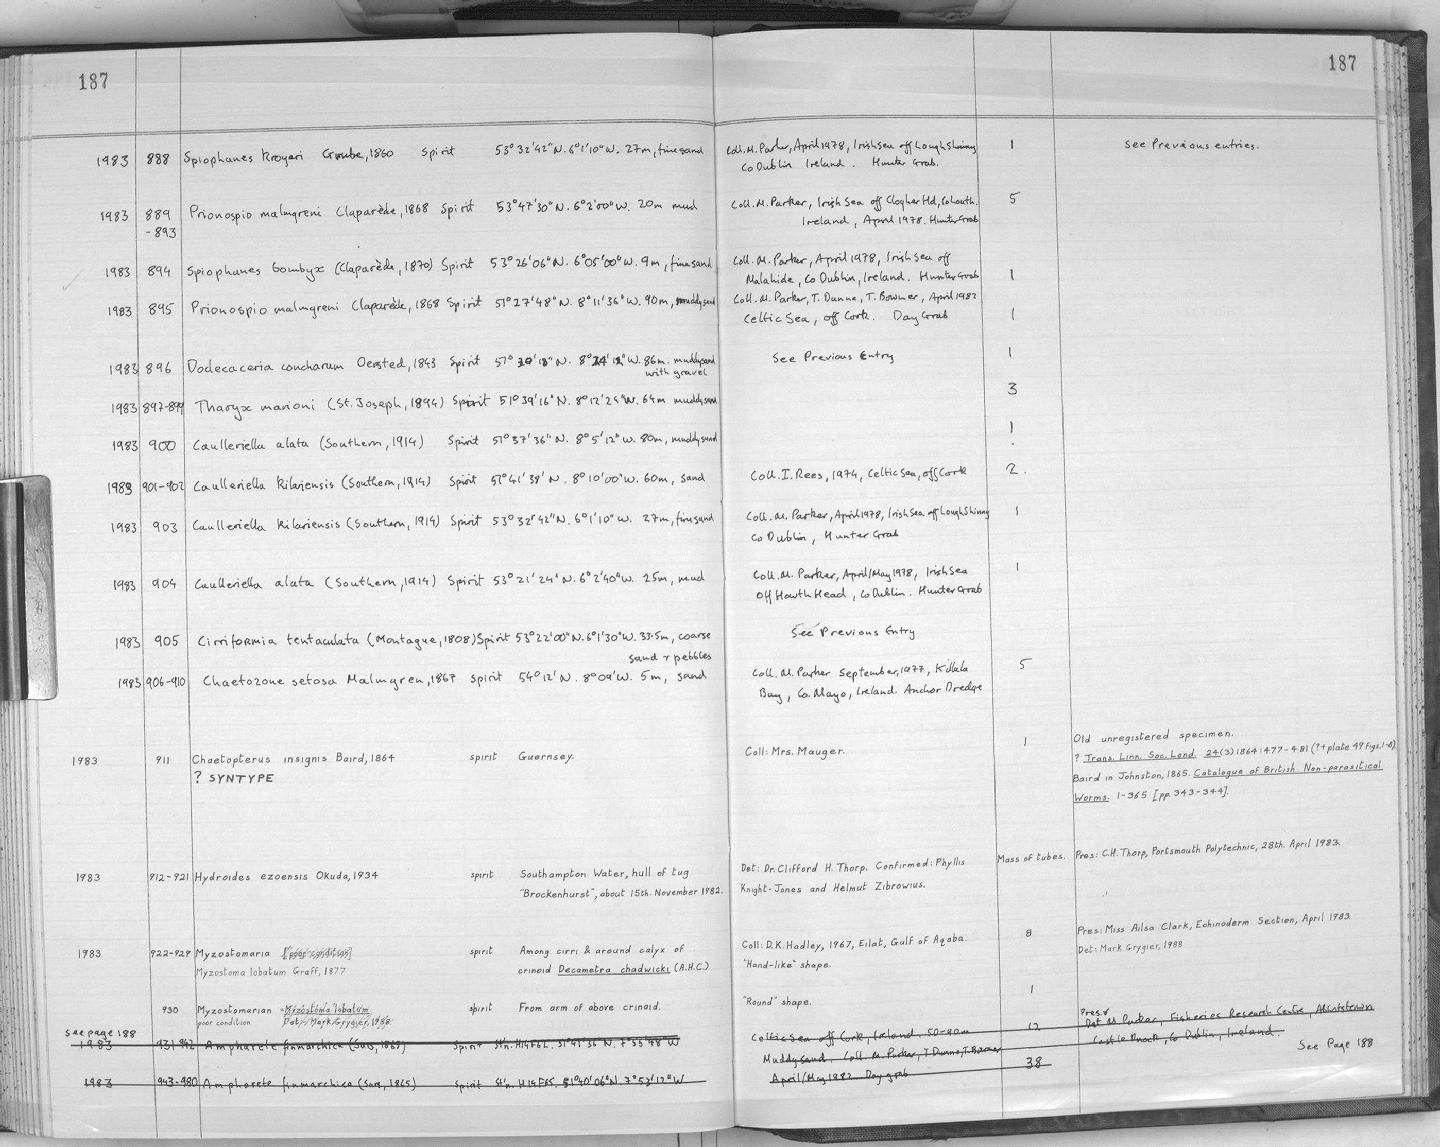 187
187
1983 888 Spiophanes kroyeri Grube, 1860 Spirit 53°32'42"N. 6°1'10"W. 27m, fine sand Coll. M. Parker, April 1978, Irish Sea off Lough Shinny 1 See Previous entries.
Co Dublin Ireland. Hunter Grab.
1983 889 Prionospio malmgreni Claparède, 1868 Spirit 53°47'30"N. 6°2'00"W. 20m mud Coll. M. Parker, Irish Sea off Clogher Hd, Co Louth. 5
-893 Ireland, April 1978. Hunter Grab
1983 894 Spiophanes bombyx (Claparède, 1870) Spirit 53°26'06"N. 6°05'00"W. 9m, fine sand Coll. M. Parker, April 1978, Irish Sea off
Malahide, Co Dublin, Ireland. Hunter Grab 1
1983 895 Prionospio malmgreni Claparède, 1868 Spirit 51°27'48"N. 8°11'36"W. 90m, muddy sand Coll. M. Parker, T. Dunne, T. Bowmer, April 1982
Celtic Sea, off Cork. Day Grab 1
1983 896 Dodecaceria concharum Oersted, 1843 Spirit 51° W. 86m. muddy sand See Previous Entry 1
with gravel
1983 897-899 Tharyx marioni (St. Joseph, 1894) Spirit 51°39'16"N. 8°12'24"W. 64m muddy sand 3
1983 900 Caulleriella alata (Southern, 1914) Spirit 51°37'36"N. 8°5'12"W. 80m, muddy sand 1
1983 901-902 Caulleriella kilariensis (Southern, 1914) Spirit 51°41'38'N. 8°10'00"W. 60m, sand Coll. I. Rees, 1974, Celtic Sea, off Cork 2.
1983 903 Caulleriella kilariensis (Southern, 1914) Spirit 53°32'42"N. 6°1'10"W. 27m, fine sand Coll. M. Parker, April 1978, Irish Sea off Lough Shinny 1
Co Dublin, Hunter Grab
1983 904 Caulleriella alata (Southern, 1914) Spirit 53°21'24"N. 6°2'40"W. 25m, mud Coll. M. Parker, April/May 1978, Irish Sea 1
off Howth Head, Co Dublin. Hunter Grab
1983 905 Cirriformia tentaculata (Montague, 1808) Spirit 53°22'00"N. 6°1'30"W. 33.5m, coarse See Previous Entry
sand + pebbles
1983 906-910 Chaetozone setosa Malmgren, 1867 spirit 54°12'N. 8°09'W. 5m, sand Coll. M. Parker September, 1977, Killala 5
Bay, Co. Mayo, Ireland. Anchor Dredge
1983 911 Chaetopterus insignis Baird, 1864 spirit Guernsey. Coll: Mrs. Mauger. 1 Old unregistered specimen.
? SYNTYPE
? Trans. Linn. Soc. Lond. 24(3) 1864: 477-481 (?+ plate 49 figs. 1-8)
Baird in Johnston, 1865. Catalogue of British Non-parasitical
Worms. 1-365 [pp. 343-344].
1983 912-921 Hydroides ezoensis Okuda, 1934 spirit Southampton Water, hull of tug Det: Dr. Clifford H. Thorp. Confirmed: Phyllis Mass of tubes. Pres: C.H. Thorp, Portsmouth Polytechnic, 28th. April 1983.
"Brockenhurst", about 15th. November 1982. Knight-Jones and Helmut Zibrowius.
1983 922-929 Myzostomaria [poor condition] spirit Among cirri & around calyx of Coll: D.K. Hadley, 1967, Eilat, Gulf of Aqaba. 8 Pres: Miss Ailsa Clark, Echinoderm Section, April 1983.
Myzostoma lobatum Graff, 1877 crinoid Decametra chadwicki (A.H.C.) "Hand-like" shape. Det: Mark Grygier, 1988
930 Myzostomarian - Myzostoma lobatum spirit From arm of above crinoid. "Round" shape. 1
poor condition Det: Mark Grygier, 1988
see page 188
1983 931-942 Ampharete finmarchica (Sars, 1865) Spirit Stn. H14F62. 51°41'36"N. 7°55'48"W Celtic Sea off Cork, Ireland 50-90m 12 Pres +
Det M. Parker, Fisheries Research Centre, Abbotstown
Muddy sand. Coll M. Parker, T. Dunne, T. Bowmer Castle Knock, Co Dublin, Ireland.
1983 943-980 Ampharete finmarchica (Sars, 1865) Spirit Stn. H14F65, 51°40'06"N. 7°53'12"W April/May 1982 Day grab 38 See Page 188